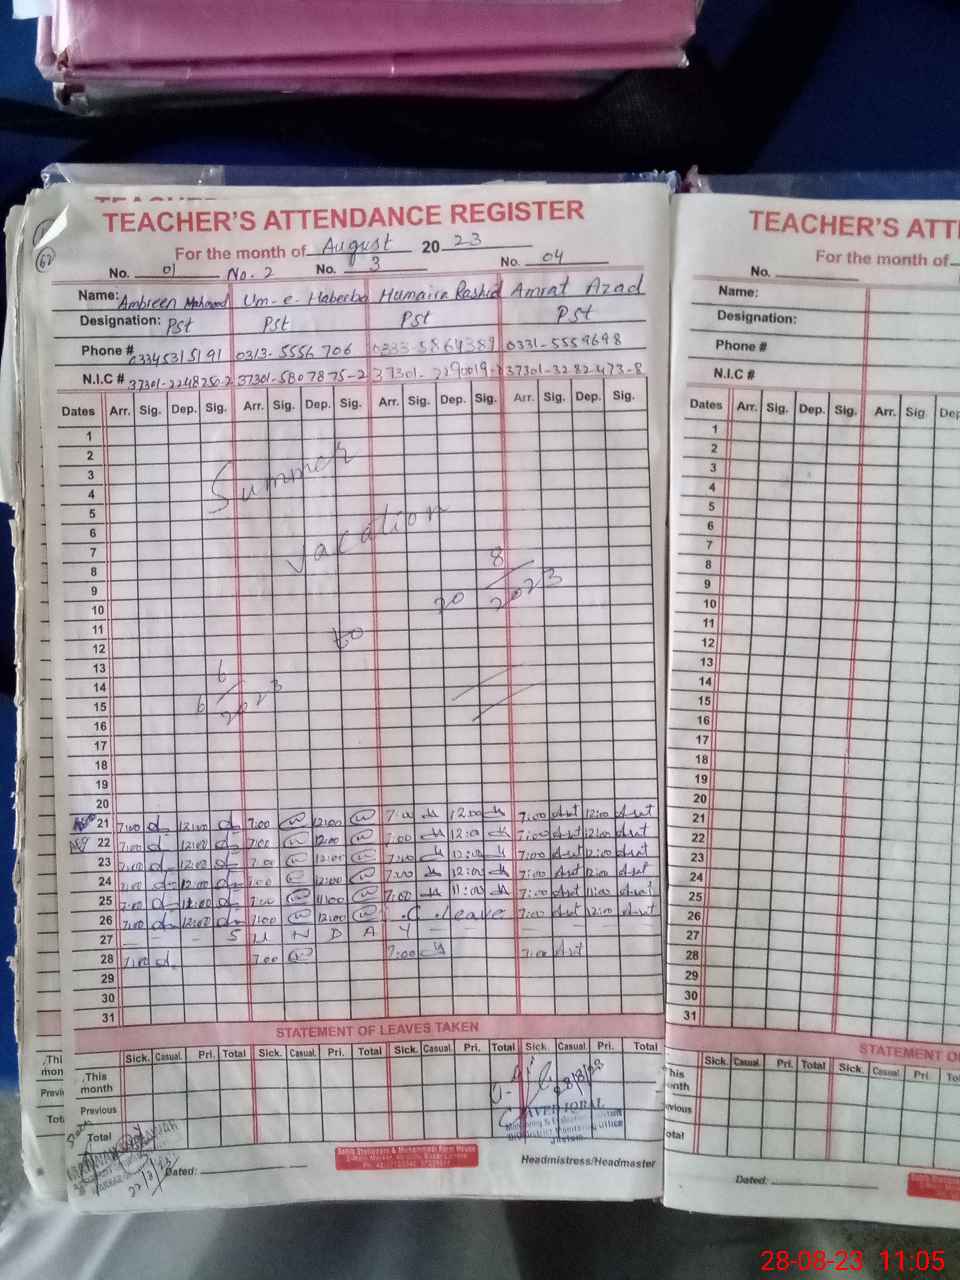 TEACHER'S ATTENDANCE REGISTER
For the month of August 2023
No. 01 No. 2 No. 3 No. 04
Name: Ambreen Mahmood Um-e-Habeeba Humaira Rashid Amrat Azad
Designation: Pst Pst Pst Pst
Phone # 03345315191 0313-5556706 0333-5864389 0331-5559698
N.I.C # 37301-2248250-2 37301-5807875-2 37301-2290019- 37301-3282473-8
Dates Arr. Sig. Dep. Sig. Arr. Sig. Dep. Sig. Arr. Sig. Dep. Sig. Arr. Sig. Dep. Sig.
1
2
3
4
5
6
7
8
9
10
11
12
13
14
15
16
17
18
19
20
Summer
vacation
6/6/2023 to 20/8/2023
21 7:00 12:00 7:00 12:00 7:00 12:00 7:00 12:00
22 7:00 12:00 7:00 12:00 7:00 12:00 7:00 12:00
23 7:00 12:00 7:00 12:00 7:00 12:00 7:00 12:00
24 7:00 12:00 7:00 12:00 7:00 12:00 7:00 12:00
25 7:00 7:00 11:00 7:00 11:00 7:00 11:00
26 7:00 12:00 7:00 12:00 C. leave 7:00 12:00
27 S U N D A Y
28 7:00 7:00 7:00 7:00
29
30
31
STATEMENT OF LEAVES TAKEN
Sick. Casual. Pri. Total Sick. Casual. Pri. Total Sick. Casual. Pri. Total Sick. Casual. Pri. Total
This month
Previous
Total
28/8/23
22/8/23
Dated:
Headmistress/Headmaster
TEACHER'S ATTE
For the month of
No.
Name:
Designation:
Phone #
N.I.C #
Dates Arr. Sig. Dep. Sig. Arr. Sig. Dep
1
2
3
4
5
6
7
8
9
10
11
12
13
14
15
16
17
18
19
20
21
22
23
24
25
26
27
28
29
30
31
STATEMENT O
Sick. Casual. Pri. Total Sick. Casual. Pri.
Dated:
28-08-23 11:05